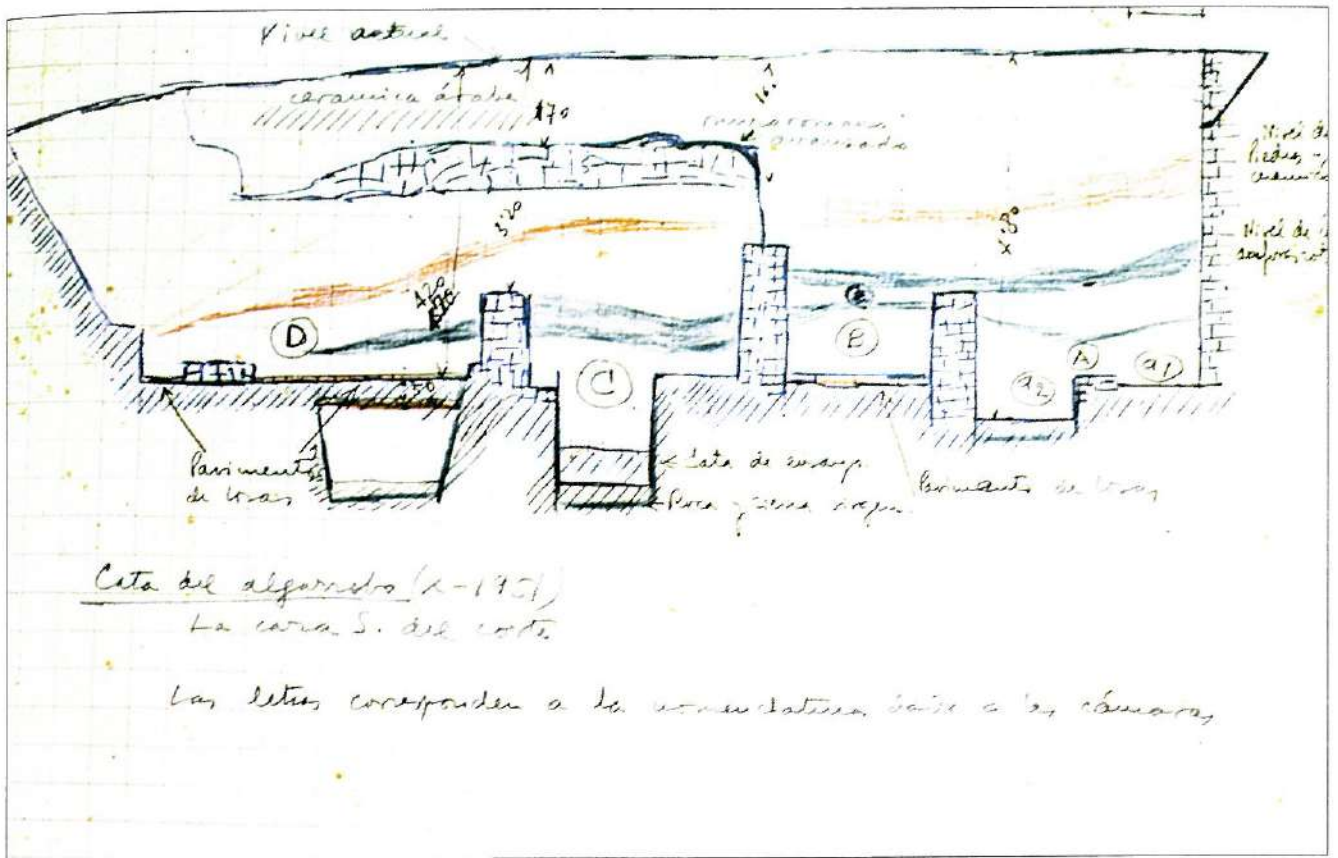 Nivel actual
cerámica árabe
170
Nivel de
Piedras y
cerámica
3'20
Nivel de
4'20
D
C
B
A
a1
a2
Pavimento
de losas
Cata de ensayo
Roca y tierra
Pavimento de losas
Cata del algarrobo (X-1951)
La cara S. del corte
Las letras corresponden a la nomenclatura dada a las cámaras